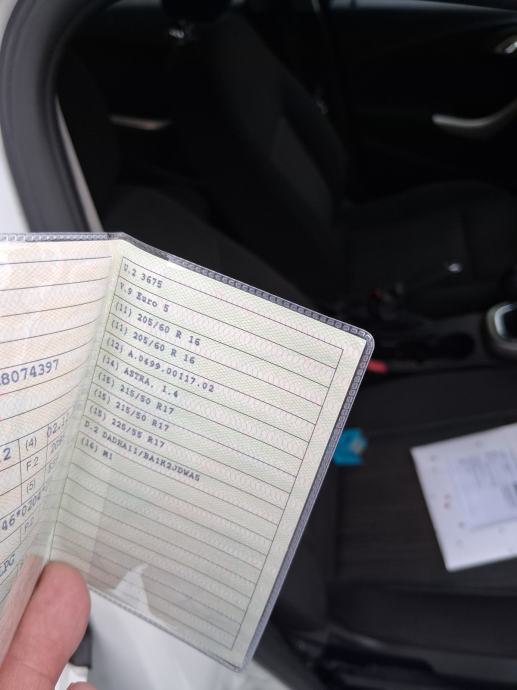 8074397
2
(4) 02.1
F.2
(5)
V.2 3675
V.9 Euro 5
(11) 205/60 R 16
(11) 205/60 R 16
(12) A.0499.00117.02
(14) ASTRA, 1.4
(15) 215/50 R17
(15) 215/50 R17
(15) 225/55 R17
D.2 DADHA11/BA1K2JDWA5
(16) M1